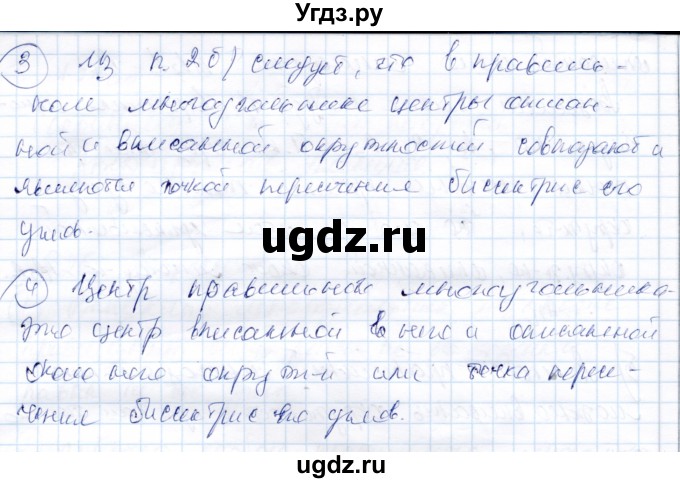 Угдз.ру
③ Из п 2б) следует, что в правиль-
ном многоугольнике центры описан-
ной и вписанной окружностей совпадают и
являются точкой пересечения биссектрис его
углов.
ugdz.ru
④ Центр правильного многоугольника-
это центр вписанной в него и описанной
около него окруж-й или точка пересе-
чения биссектрис его углов.
ugdz.ru
ugdz.ru